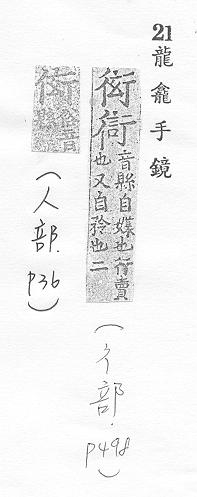 21 龍龕手鏡
衒 音縣自媒也行賣
也又自矜也二
(彳部. p498)
(人部. p36)